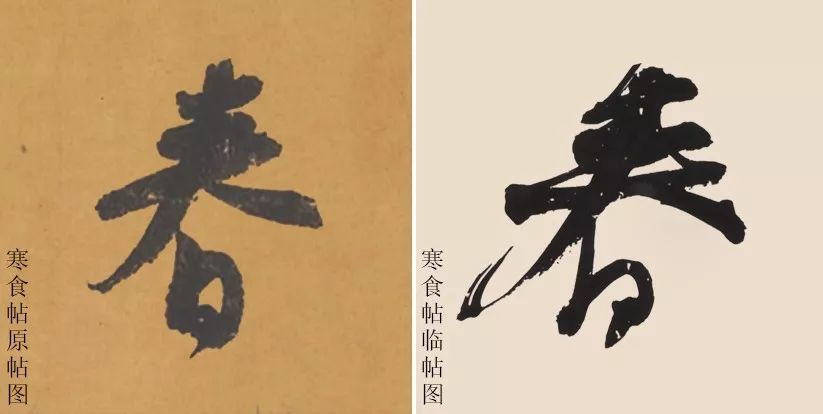 春
寒食帖原帖图
春
寒食帖临帖图